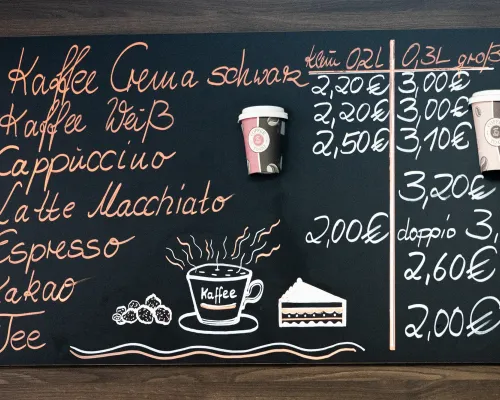 klein 0,2L 0,3L groß
Kaffee Crema schwarz 2,20€ 3,00€
Kaffee Weiß 2,20€ 3,00€
Cappuccino 2,50€ 3,10€
Latte Macchiato 3,20€
Espresso 2,00€ doppio 3,
Kakao 2,60€
Tee 2,00€
Kaffee